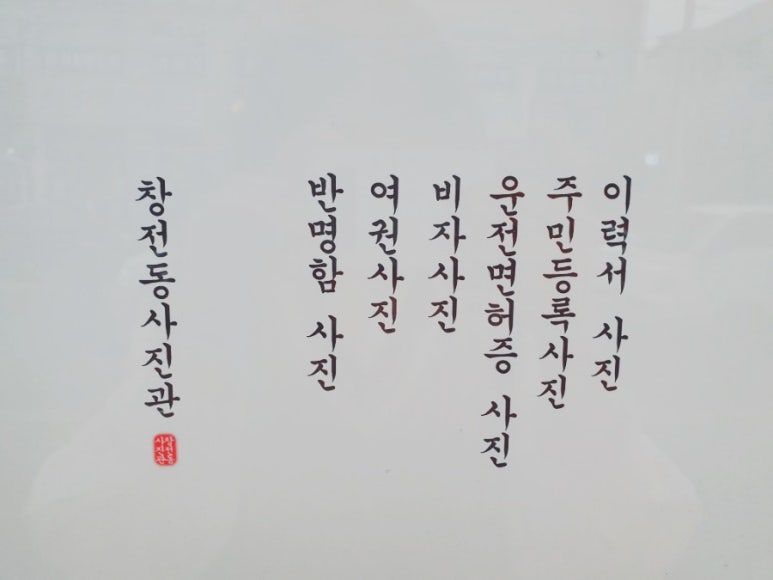 이력서 사진
주민등록사진
운전면허증 사진
비자사진
여권사진
반명함 사진
창전동사진관
창전동
사진관